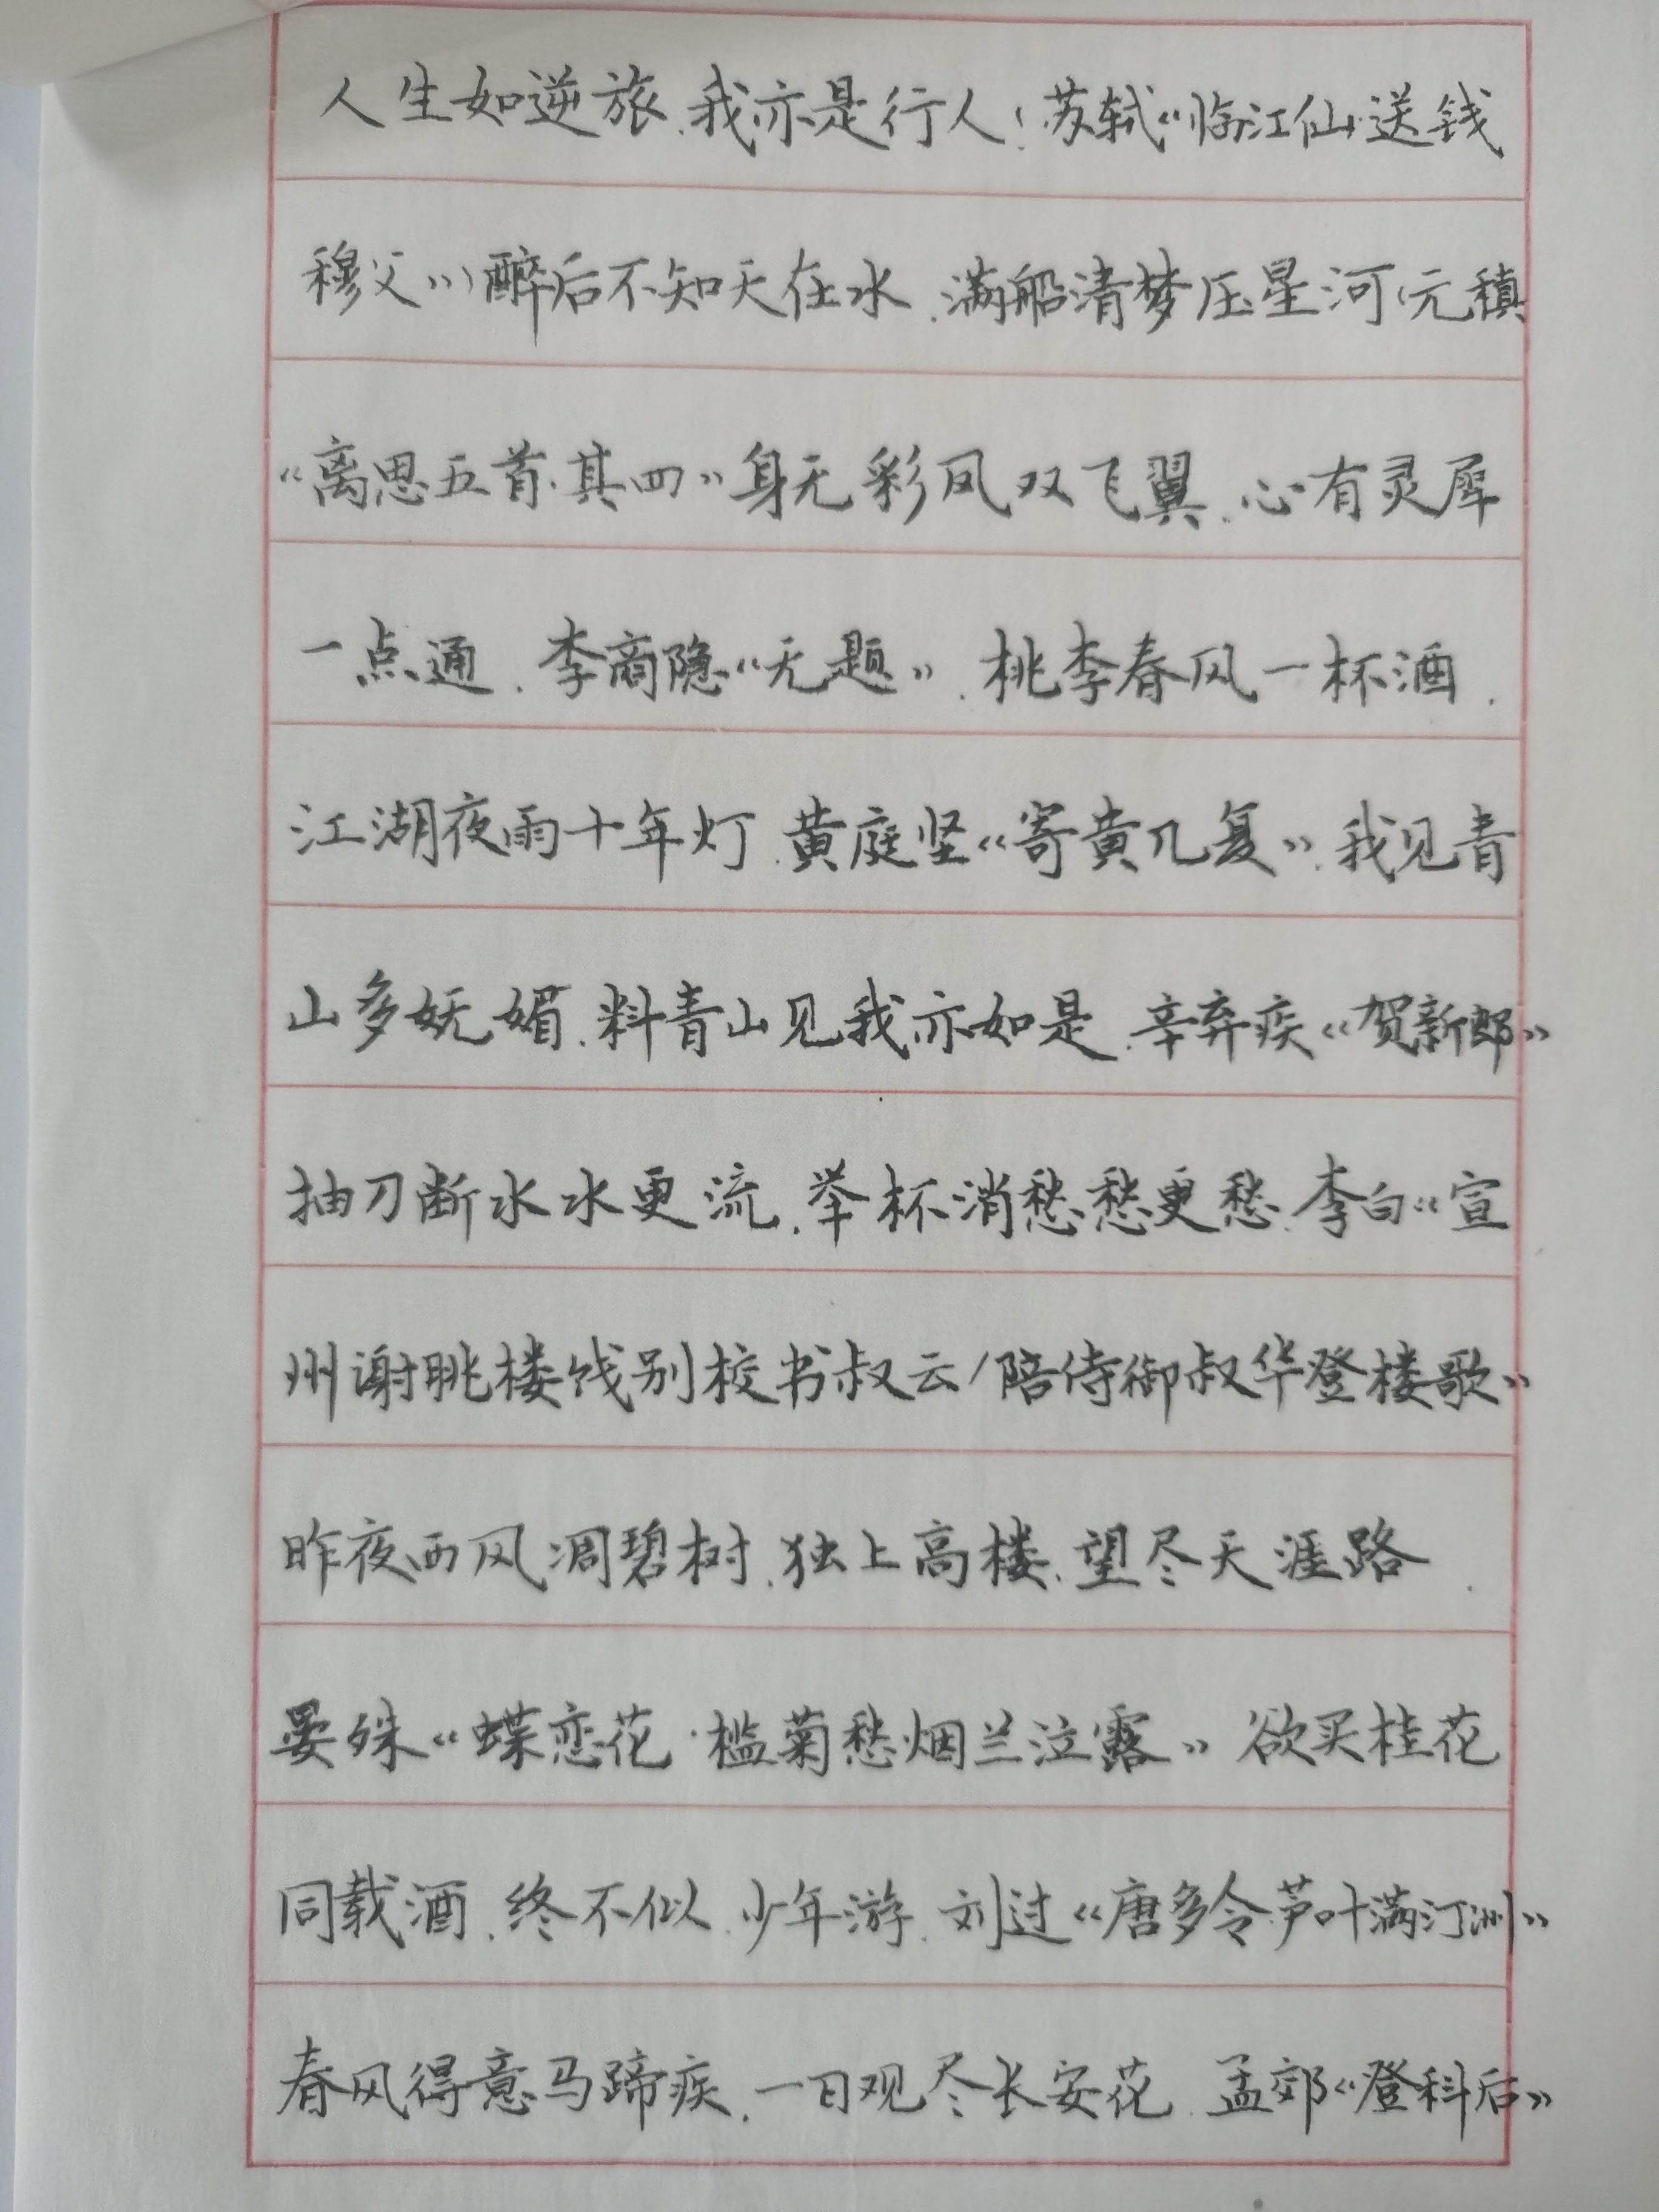 人生如逆旅.我亦是行人.苏轼《临江仙·送钱
穆父》醉后不知天在水.满船清梦压星河.元稹
《离思五首·其四》身无彩凤双飞翼.心有灵犀
一点通.李商隐《无题》.桃李春风一杯酒.
江湖夜雨十年灯.黄庭坚《寄黄几复》.我见青
山多妩媚.料青山见我亦如是.辛弃疾《贺新郎》
抽刀断水水更流.举杯消愁愁更愁.李白《宣
州谢眺楼饯别校书叔云/陪侍御叔华登楼歌》
昨夜西风凋碧树.独上高楼.望尽天涯路.
晏殊《蝶恋花·槛菊愁烟兰泣露》欲买桂花
同载酒.终不似.少年游.刘过《唐多令·芦叶满汀洲》
春风得意马蹄疾.一日观尽长安花.孟郊《登科后》